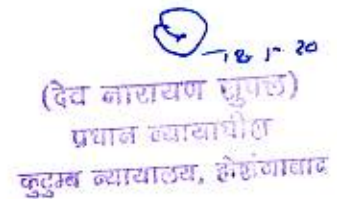 18 1 20
(देव नारायण शुक्ल)
प्रधान न्यायाधीश
कुटुम्ब न्यायालय, होशंगाबाद